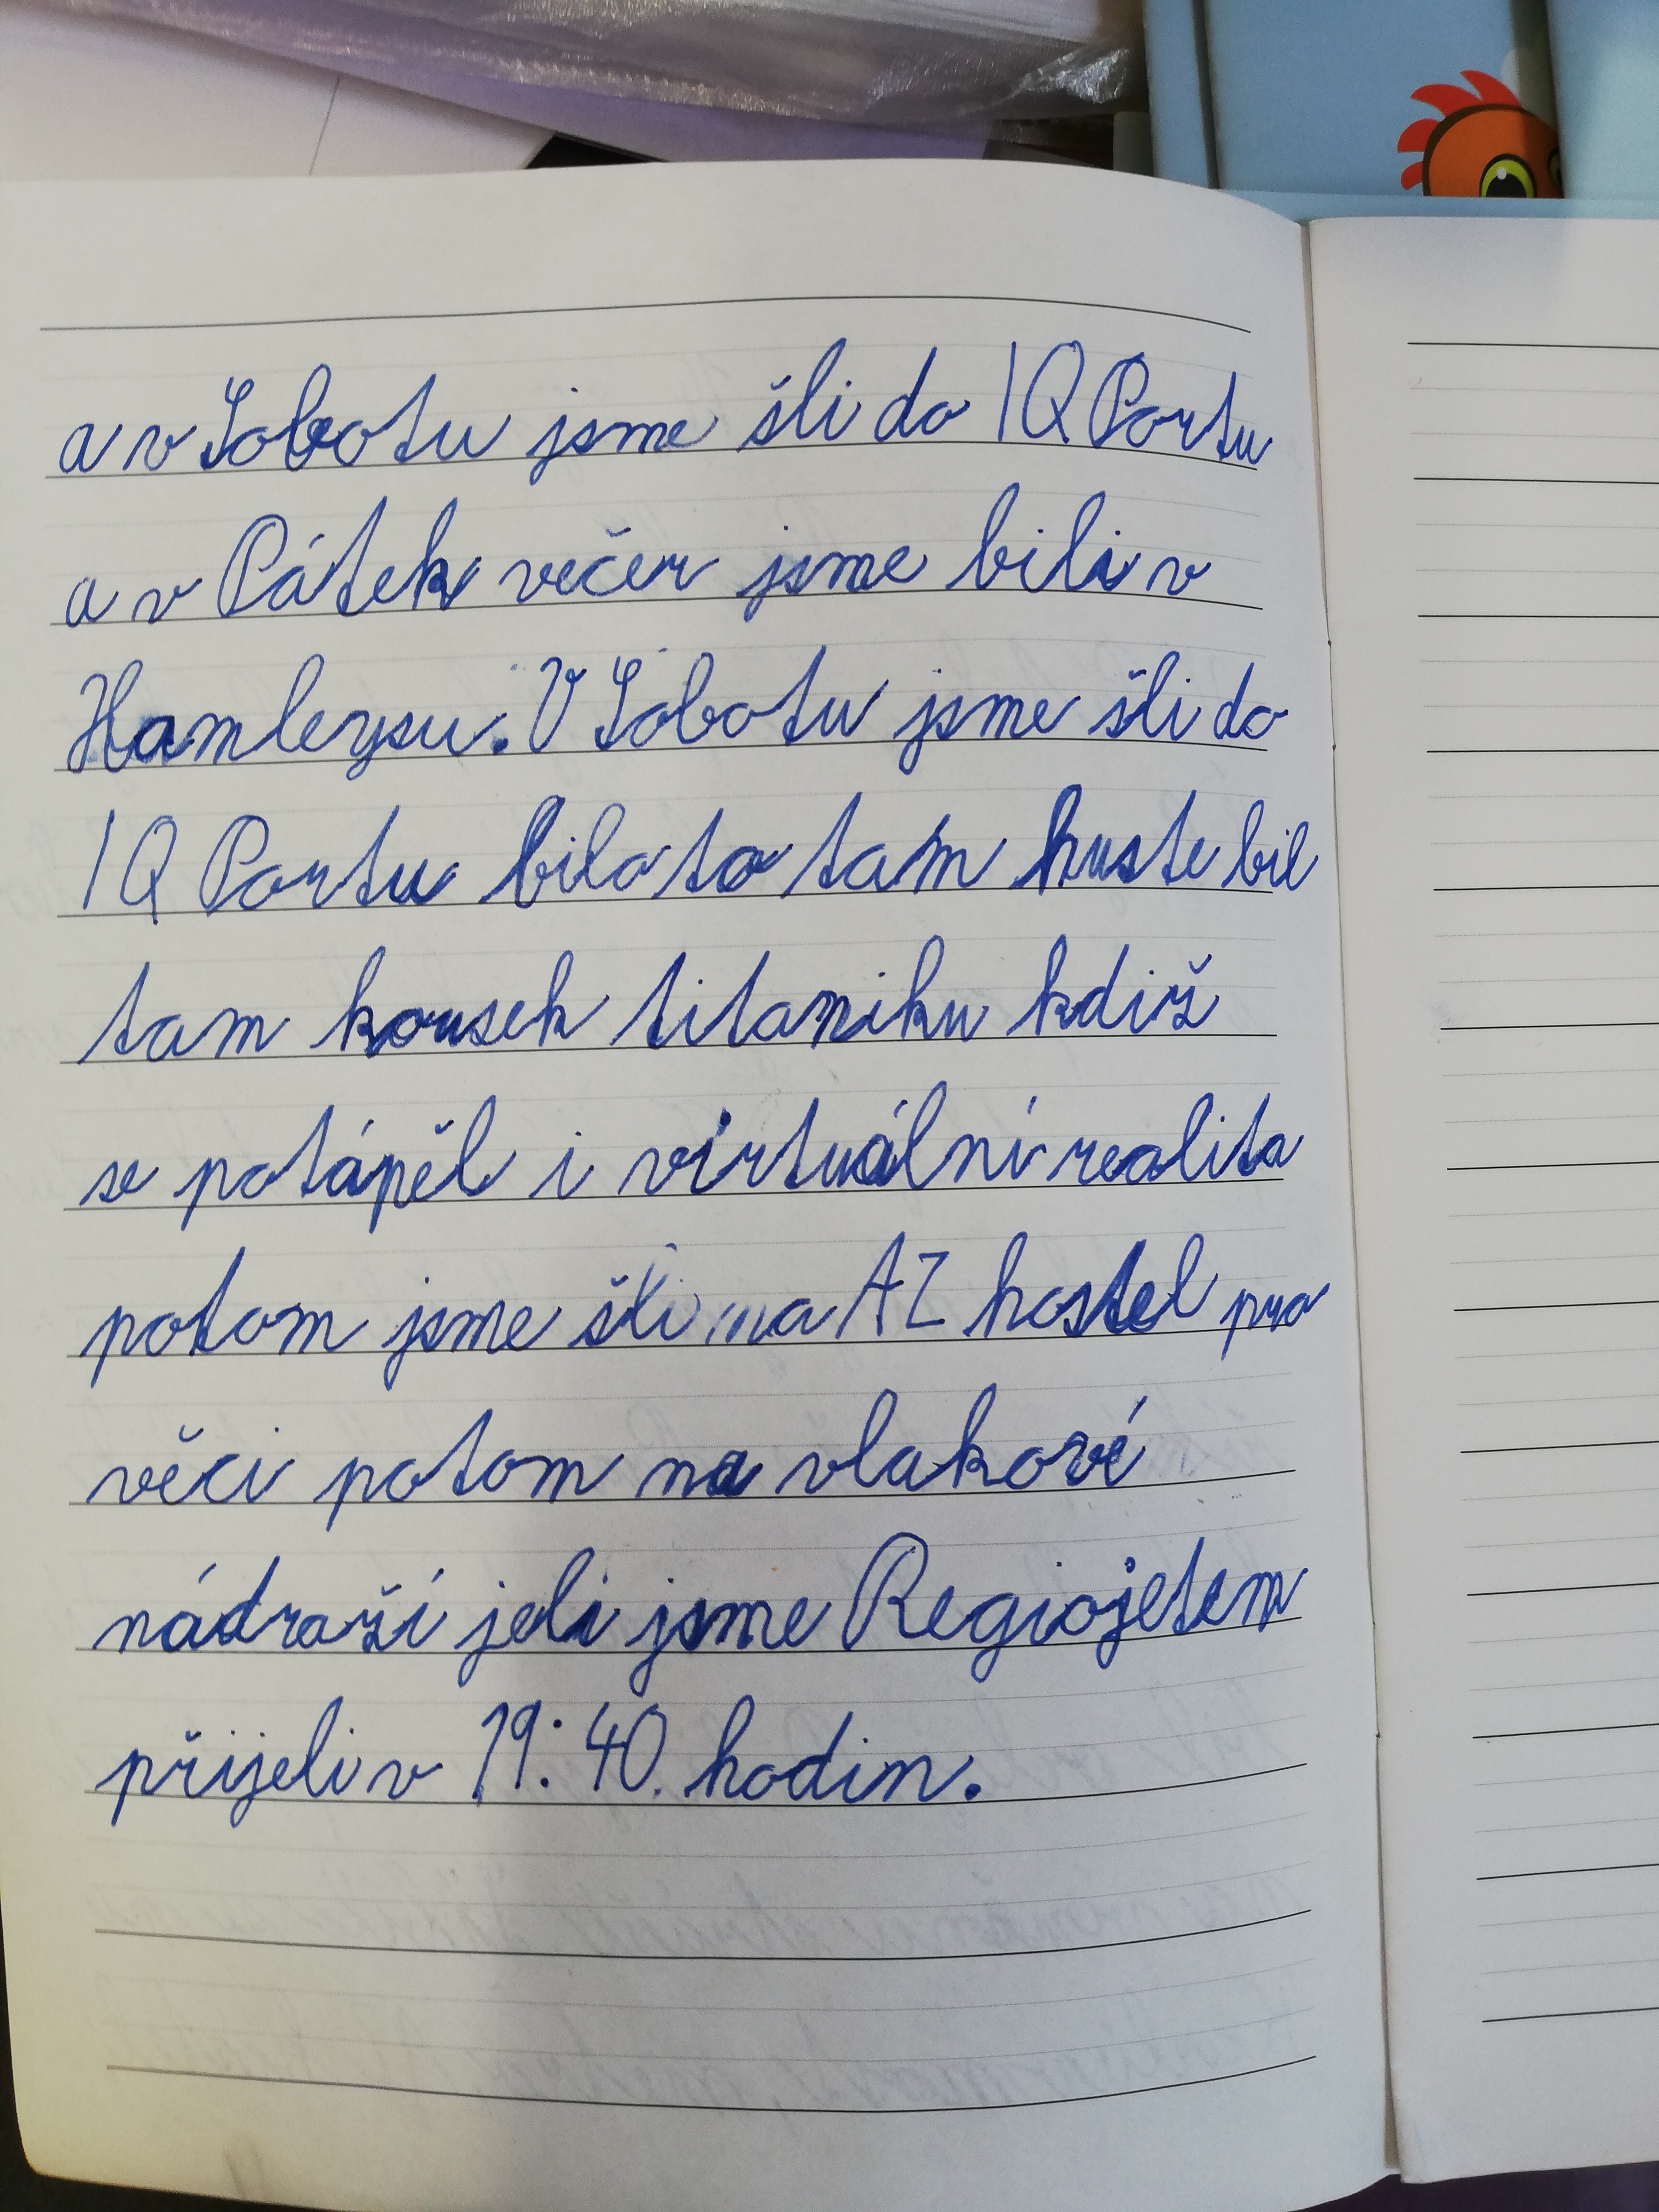 a v Sobotu jsme šli do IQ Portu
a v Pátek večer jsme bili v
Hamleysu. V Sobotu jsme šli do
IQ Portu bilo to tam huste bil
tam kousek titaniku kdiž
se potápěl i virtuální realita
potom jsme šli na AZ hostel pro
věci potom na vlakové
nádraží jeli jsme Regiojetem
přijeli v 19:40 hodin.